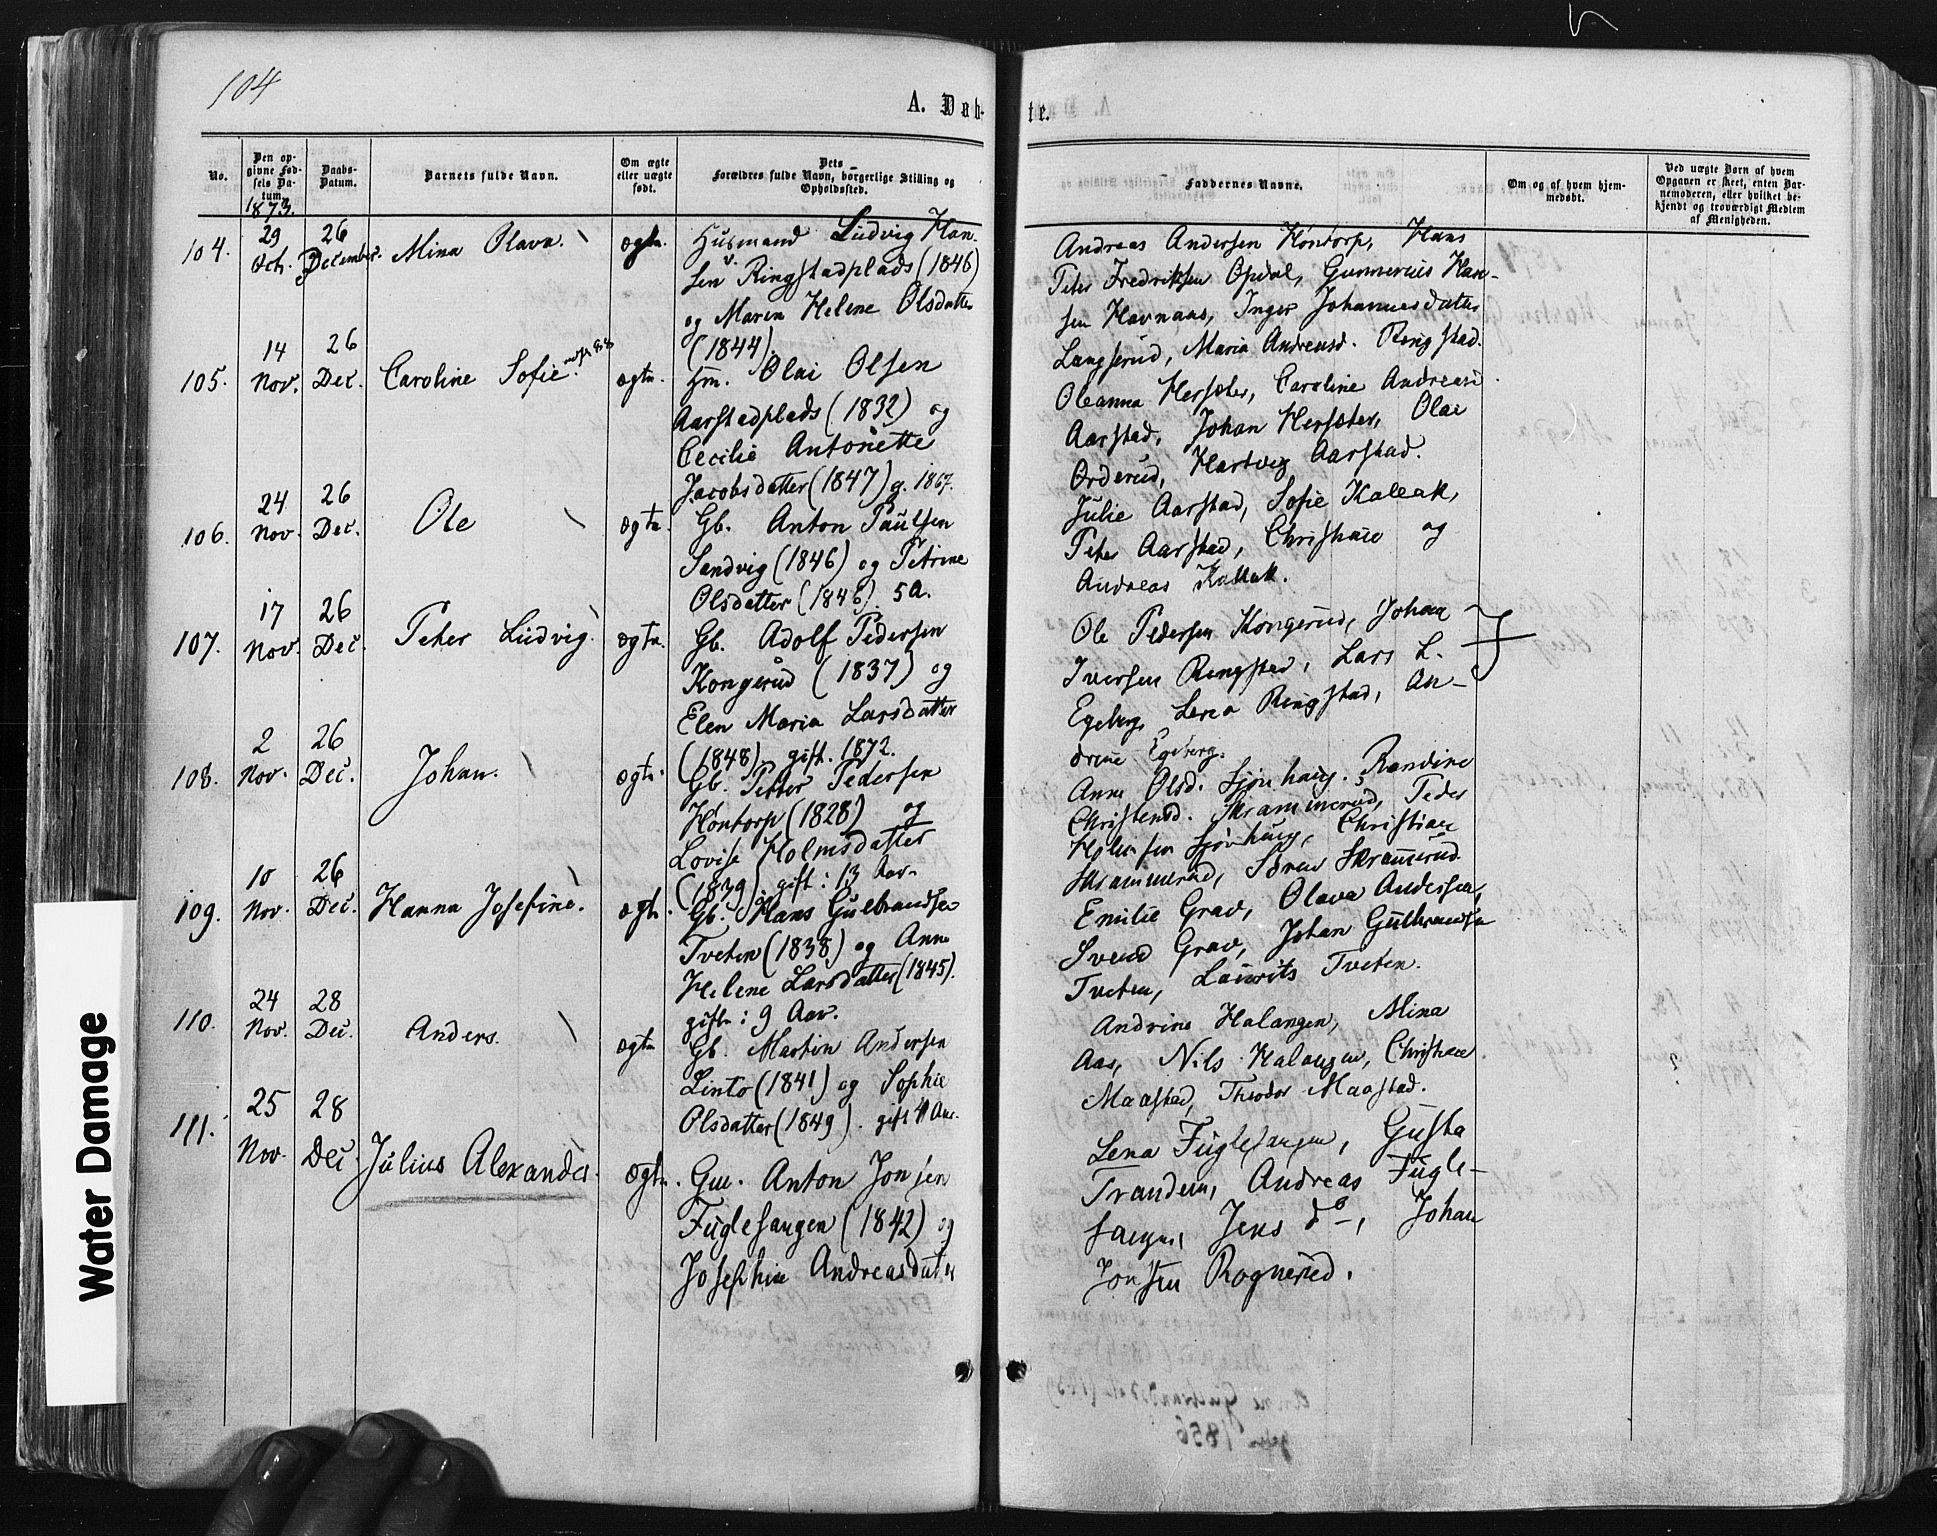 104
A. Døb-
te.
No.
Den op-
givne Fød-
sels Da-
tum.
Daabs-
Datum.
Barnets fulde Navn.
Om ægte
eller uægte
født.
Dets
Forældres fulde Navn, borgerlige Stilling og
Opholdssted.
Faddernes Navne.
Om og af hvem hjem-
medøbt.
Ved uægte Børn af hvem
Opgaven er skeet, enten Bar-
nemoderen, eller hvilket be-
kjendt og troværdigt Medlem
af Menigheden.
1873.
104.
29
Oct.
26
December.
Mina Olava.
ægte.
Husmand Ludvig Han-
sen Ringstadplads (1846)
og Maren Helene Olsdatter
(1844)
Andreas Andersen Høntorp, Hans
Peter Fredriksen Opdal, Gunnerius Han-
sen Havnaas, Inger Johannesdatter
Langserud, Maria Andreasd. Ringstad.
105.
14
Nov.
26
Dec.
Caroline Sofie.
ægte.
Hm. Olai Olsen
Aarstadplads (1832) og
Cecilie Antonette
Jacobsdatter (1847) g. 1867.
Oleanna Hersæter, Caroline Andreasd.
Aarstad, Johan Hersæter, Olai
Orderud, Hartvig Aarstad.
106.
24
Nov.
26
Dec.
Ole
ægte.
Gb. Anton Paulsen
Sandvig (1846) og Petrine
Olsdatter (1848) 5 A.
Julie Aarstad, Sofie Kallak,
Peter Aarstad, Christian og
Andreas Kallak.
107.
17
Nov.
26
Dec.
Peter Ludvig.
ægte.
Gb. Adolf Pedersen
Kongerud (1837) og
Elen Maria Larsdatter
(1848) gift. 1872.
Ole Pedersen Kongerud, Johan
Iversen Ringstad, Lars L.
Egeberg, Lena Ringstad, An-
drine Egeberg.
108.
2
Nov.
26
Dec.
Johan.
ægte.
Gb. Petter Pedersen
Høntorp (1828) og
Lovise Holmsdatter
(1839) gift i 13 Aar.
Anne Olsd. Sjønhaug. Randine
Christensd. Skrammerud, Peder
Holmsen Sjønhaug, Christian
Skrammerud, Søren Skrammerud.
109.
10
Nov.
26
Dec.
Hanna Josefine.
ægte.
Gb. Hans Gulbrandsen
Tveten (1838) og Anne
Helene Larsdatter (1845).
gifte i 9 Aar.
Emilie Grav, Olava Andersen,
Svend Grav, Johan Gulbrandsen
Tveten, Laurits Tveten.
110.
24
Nov.
28
Dec.
Anders.
ægte
Gb. Martin Andersen
Linto (1841) og Sophie
Olsdatter (1849). gift 4 Aar.
Andrine Halangen, Mina
Aas, Nils Halangen, Christian
Maastad, Theodor Maastad.
111.
25
Nov.
28
Dec.
Julius Alexander.
ægte.
Gm. Anton Jonsen
Fuglesangen (1842) og
Josephine Andreasdatter
Lena Fuglesangen, Gusta
Trandem, Andreas Fugle-
sangen, Jens do, Johan
Jonsen Rognerud.
Water Damage